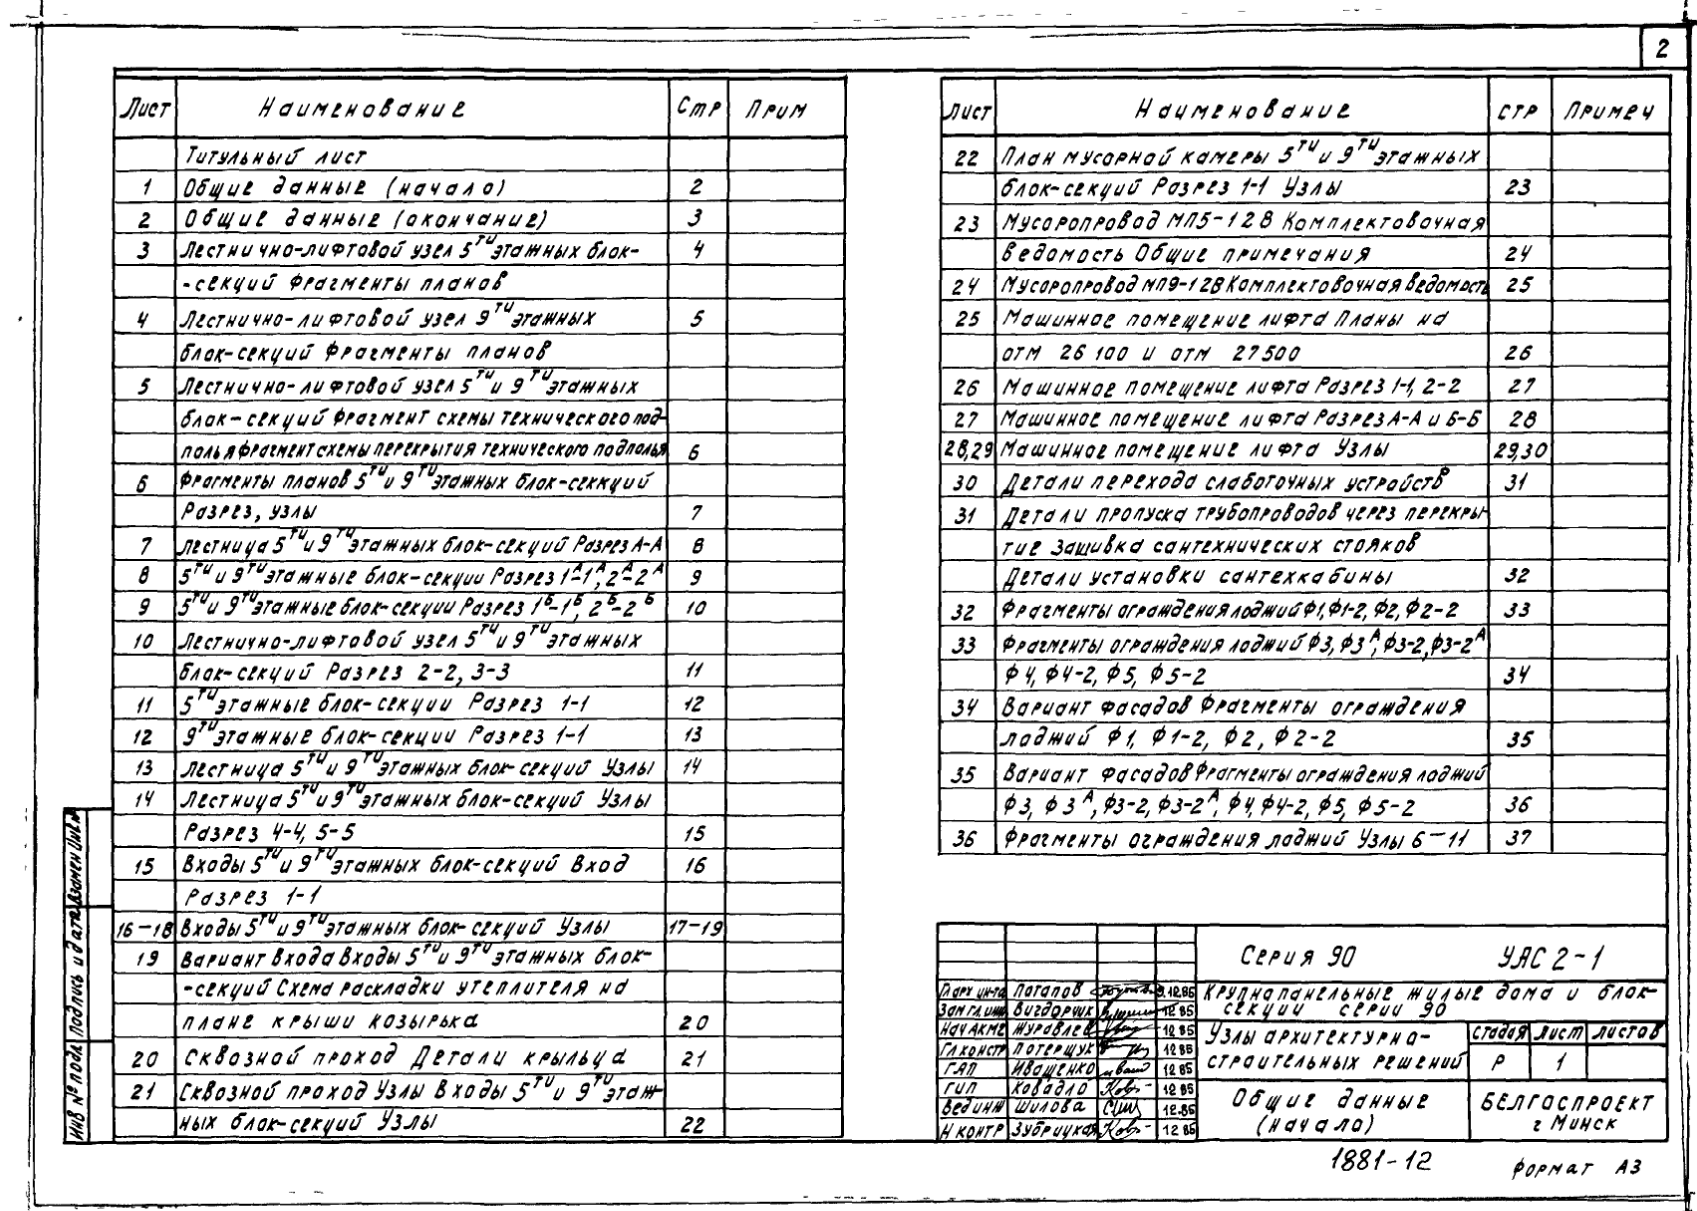 2
Лист Наименование Стр Прим
Титульный лист
1 Общие данные (начало) 2
2 Общие данные (окончание) 3
3 Лестнично-лифтовой узел 5ти этажных блок- 4
-секций Фрагменты планов
4 Лестнично-лифтовой узел 9ти этажных 5
блок-секций Фрагменты планов
5 Лестнично-лифтовой узел 5ти и 9ти этажных
блок-секций Фрагмент схемы технического под-
полья Фрагмент схемы перекрытия технического подполья 6
6 Фрагменты планов 5ти и 9ти этажных блок-секкций
Разрез, узлы 7
7 Лестница 5ти и 9ти этажных блок-секций Разрез А-А 8
8 5ти и 9ти этажные блок-секции Разрез 1А-1А, 2А-2А 9
9 5ти и 9ти этажные блок-секции Разрез 1Б-1Б, 2Б-2Б 10
10 Лестнично-лифтовой узел 5ти и 9ти этажных
блок-секций Разрез 2-2, 3-3 11
11 5ти этажные блок-секции Разрез 1-1 12
12 9ти этажные блок-секции Разрез 1-1 13
13 Лестница 5ти и 9ти этажных блок-секций Узлы 14
14 Лестница 5ти и 9ти этажных блок-секций Узлы
Разрез 4-4, 5-5 15
15 Входы 5ти и 9ти этажных блок-секций Вход 16
Разрез 1-1
16-18 Входы 5ти и 9ти этажных блок-секций Узлы 17-19
19 Вариант входа Входы 5ти и 9ти этажных блок-
-секций Схема раскладки утеплителя на
плане крыши козырька 20
20 Сквозной проход Детали крыльца 21
21 Сквозной проход Узлы Входы 5ти и 9ти этаж-
ных блок-секций Узлы 22
Лист Наименование стр Примеч
22 План мусорной камеры 5ти и 9ти этажных
блок-секций Разрез 1-1 Узлы 23
23 Мусоропровод МП5-12В Комплектовочная
ведомость Общие примечания 24
24 Мусоропровод МП9-12В Комплектовочная ведомость 25
25 Машинное помещение лифта Планы на
отм 26 100 и отм 27500 26
26 Машинное помещение лифта Разрез 1-1, 2-2 27
27 Машинное помещение лифта Разрез А-А и Б-Б 28
28,29 Машинное помещение лифта Узлы 29,30
30 Детали перехода слаботочных устройств 31
31 Детали пропуска трубопроводов через перекры-
тие Зашивка сантехнических стояков
Детали установки сантехкабины 32
32 Фрагменты ограждения лоджий Ф1, Ф1-2, Ф2, Ф2-2 33
33 Фрагменты ограждения лоджий Ф3, Ф3А, Ф3-2, Ф3-2А
Ф4, Ф4-2, Ф5, Ф5-2 34
34 Вариант фасадов Фрагменты ограждения
лоджий Ф1, Ф1-2, Ф2, Ф2-2 35
35 Вариант фасадов Фрагменты ограждения лоджий
Ф3, Ф3А, Ф3-2, Ф3-2А, Ф4, Ф4-2, Ф5, Ф5-2 36
36 Фрагменты ограждения лоджий Узлы 6-11 37
Серия 90 УАС 2-1
Гл арх ин-та Потапов 9.12.85
Зам гл инж Вигдорчик 12 85
Нач АКМ2 Журавлев 12 85
Гл констр Потерщук 12 85
ГАП Иващенко 12 85
ГИП Ковадло 12 85
Вед инж Шилова 12.85
Н контр Зубрицкая 12 85
Крупнопанельные жилые дома и блок-
секции серии 90
Узлы архитектурно-
строительных решений
стадия лист листов
Р 1
Общие данные
(начало)
БЕЛГОСПРОЕКТ
г Минск
Инв № подл Подпись и дата Взамен инв №
1881-12
формат А3